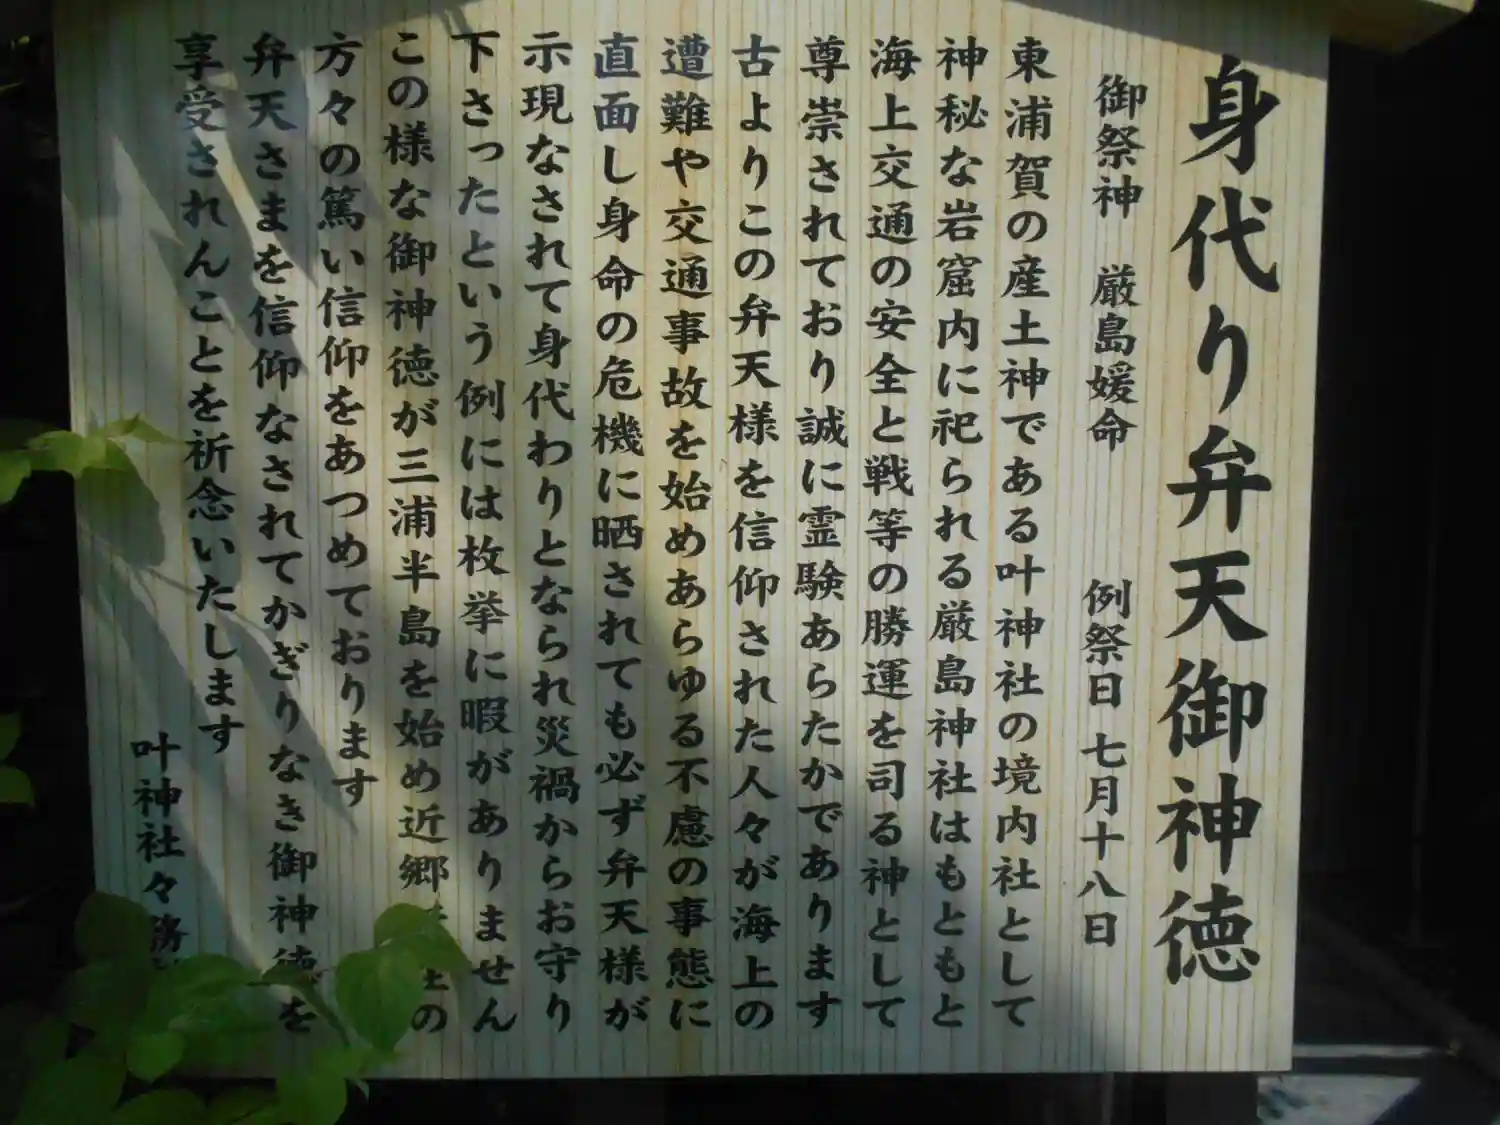 身代り弁天御神徳
御祭神　厳島媛命　例祭日 七月十八日
東浦賀の産土神である叶神社の境内社として
神秘な岩窟内に祀られる厳島神社はもともと
海上交通の安全と戦等の勝運を司る神として
尊崇されており誠に霊験あらたかであります
古よりこの弁天様を信仰された人々が海上の
遭難や交通事故を始めあらゆる不慮の事態に
直面し身命の危機に晒されても必ず弁天様が
示現なされて身代わりとなられ災禍からお守り
下さったという例には枚挙に暇がありません
この様な御神徳が三浦半島を始め近郷の
方々の篤い信仰をあつめております
弁天さまを信仰なされてかぎりなき御神徳を
享受されんことを祈念いたします
叶神社々務